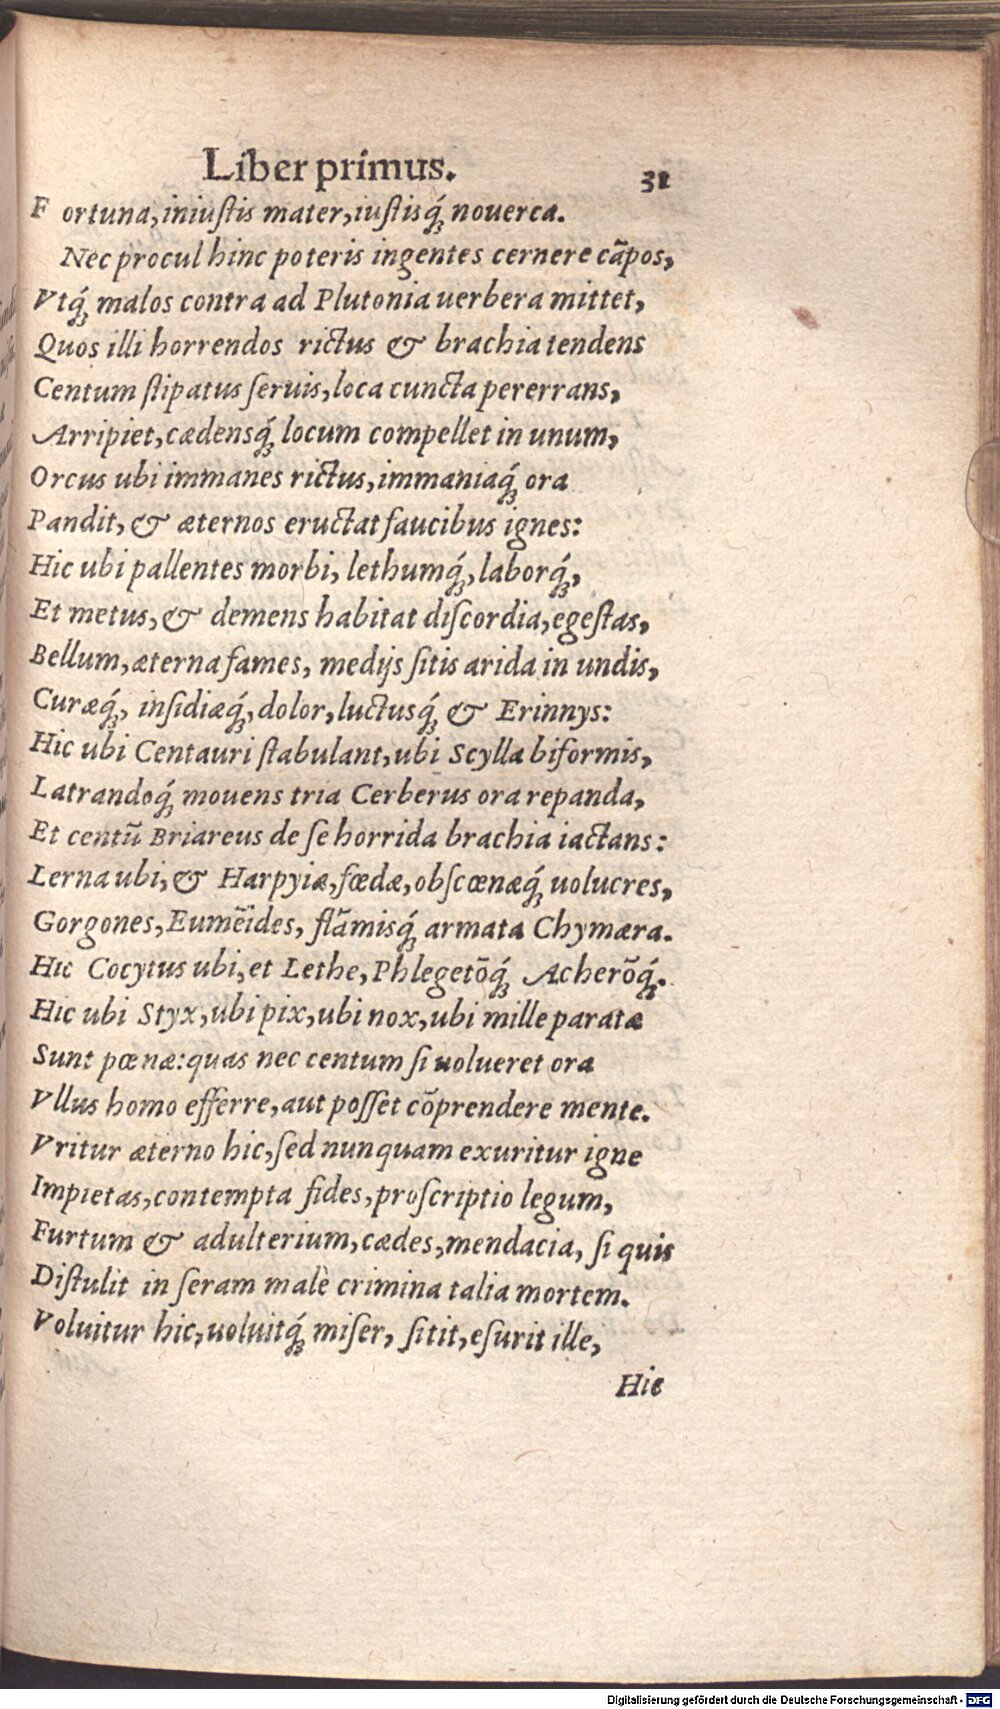 Liber primus. 31
F ortuna, iniuſtis mater, iuſtisq́; nouerca.
Nec procul hinc poteris ingentes cernere cãpos,
Vtq́; malos contra ad Plutonia uerbera mittet,
Quos illi horrendos rictus & brachia tendens
Centum ſtipatus ſeruis, loca cuncta pererrans,
Arripiet, cædensq́; locum compellet in unum,
Orcus ubi immanes rictus, immaniaq́; ora
Pandit, & æternos eructat faucibus ignes:
Hic ubi pallentes morbi, lethumq́;, laborq́;,
Et metus, & demens habitat diſcordia, egeſtas,
Bellum, æterna fames, medijs ſitis arida in undis,
Curæq́;, inſidiæq́;, dolor, luctusq́; & Erinnys:
Hic ubi Centauri ſtabulant, ubi Scylla biformis,
Latrandoq́; mouens tria Cerberus ora repanda,
Et centũ Briareus de ſe horrida brachia iactans:
Lerna ubi, & Harpyiæ, fœdæ, obſcœnæq́; uolucres,
Gorgones, Eumẽides, flãmisq́; armata Chymæra.
Hic Cocytus ubi, et Lethe, Phlegetõq́; Acherõq́;.
Hic ubi Styx, ubi pix, ubi nox, ubi mille paratæ
Sunt pœnæ: quas nec centum ſi uolueret ora
Vllus homo efferre, aut poſſet cõprendere mente.
Vritur æterno hic, ſed nunquam exuritur igne
Impietas, contempta fides, proſcriptio legum,
Furtum & adulterium, cædes, mendacia, ſi quis
Diſtulit in ſeram malè crimina talia mortem.
Voluitur hic, uoluitq́; miſer, ſitit, eſurit ille,
Hic
Digitalisierung gefördert durch die Deutsche Forschungsgemeinschaft - DFG